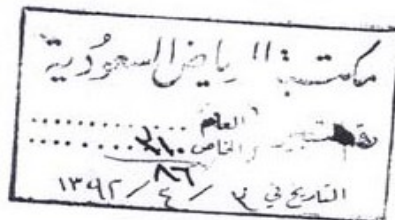 مكتبة الرياض السعودية
العام ..............
والخاص ..............
٨٦
التاريخ في ٣ / ٤ / ١٣٩٢